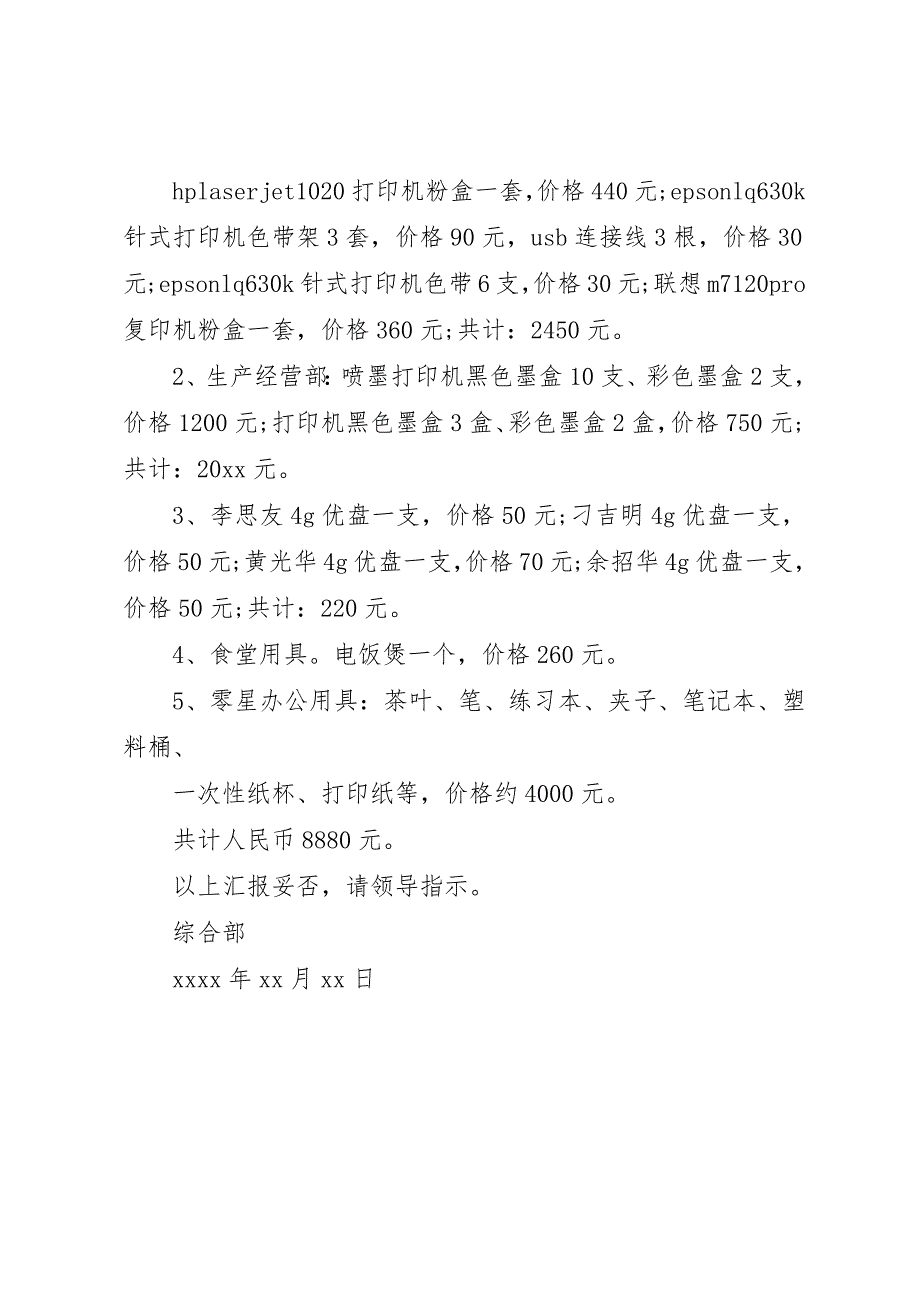 hplaserjet1020 打印机粉盒一套,价格 440 元;epsonlq630k
针式打印机色带架 3 套，价格 90 元，usb 连接线 3 根，价格 30
元;epsonlq630k 针式打印机色带 6 支,价格 30 元;联想 m7120pro
复印机粉盒一套，价格 360 元;共计：2450 元。
2、生产经营部：喷墨打印机黑色墨盒 10 支、彩色墨盒 2 支，
价格 1200 元;打印机黑色墨盒 3 盒、彩色墨盒 2 盒,价格 750 元;
共计：20xx 元。
3、李思友 4g 优盘一支，价格 50 元;刁吉明 4g 优盘一支，
价格 50 元;黄光华 4g 优盘一支,价格 70 元;余招华 4g 优盘一支，
价格 50 元;共计：220 元。
4、食堂用具。电饭煲一个，价格 260 元。
5、零星办公用具：茶叶、笔、练习本、夹子、笔记本、塑
料桶、
一次性纸杯、打印纸等，价格约 4000 元。
共计人民币 8880 元。
以上汇报妥否，请领导指示。
综合部
xxxx 年 xx 月 xx 日